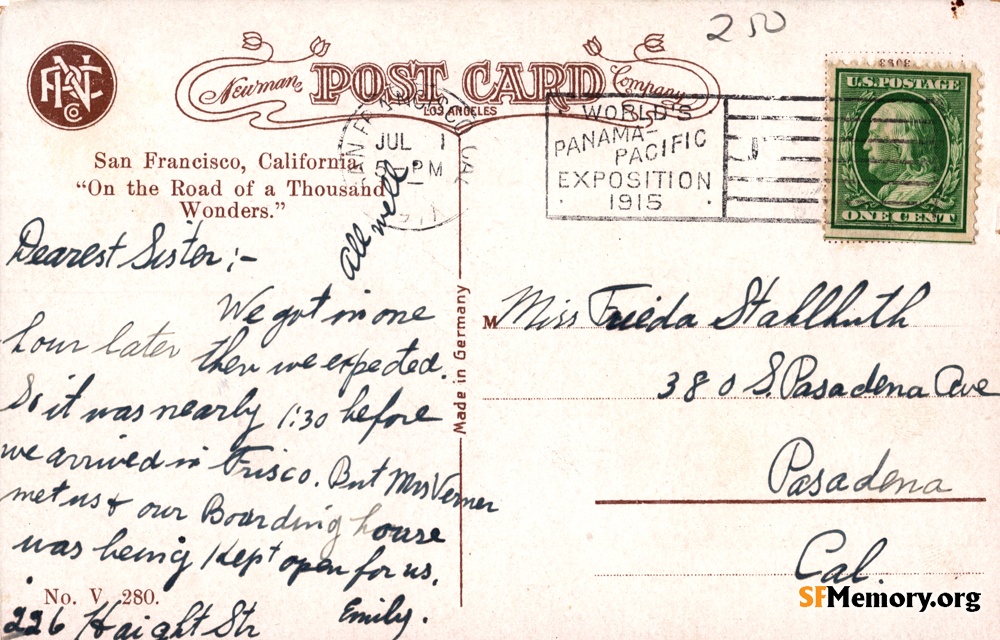 250
Newman POST CARD Company
LOS ANGELES
San Francisco, California
“On the Road of a Thousand
Wonders.”
SAN FRANCISCO CAL
JUL 1
PM
WORLD'S
PANAMA-
PACIFIC
EXPOSITION
1915
U.S. POSTAGE
ONE CENT
All well
Dearest Sister;-
We got in one
hour later then we expected.
So it was nearly 1:30 before
we arrived in Frisco. But Mrs Verner
met us & our Boarding house
was being kept open for us.
Emily.
No. V. 280.
226 Haight Str
Made in Germany
M
Miss Frieda Stahlhuth
380 S. Pasadena Ave
Pasadena
Cal.
SFMemory.org